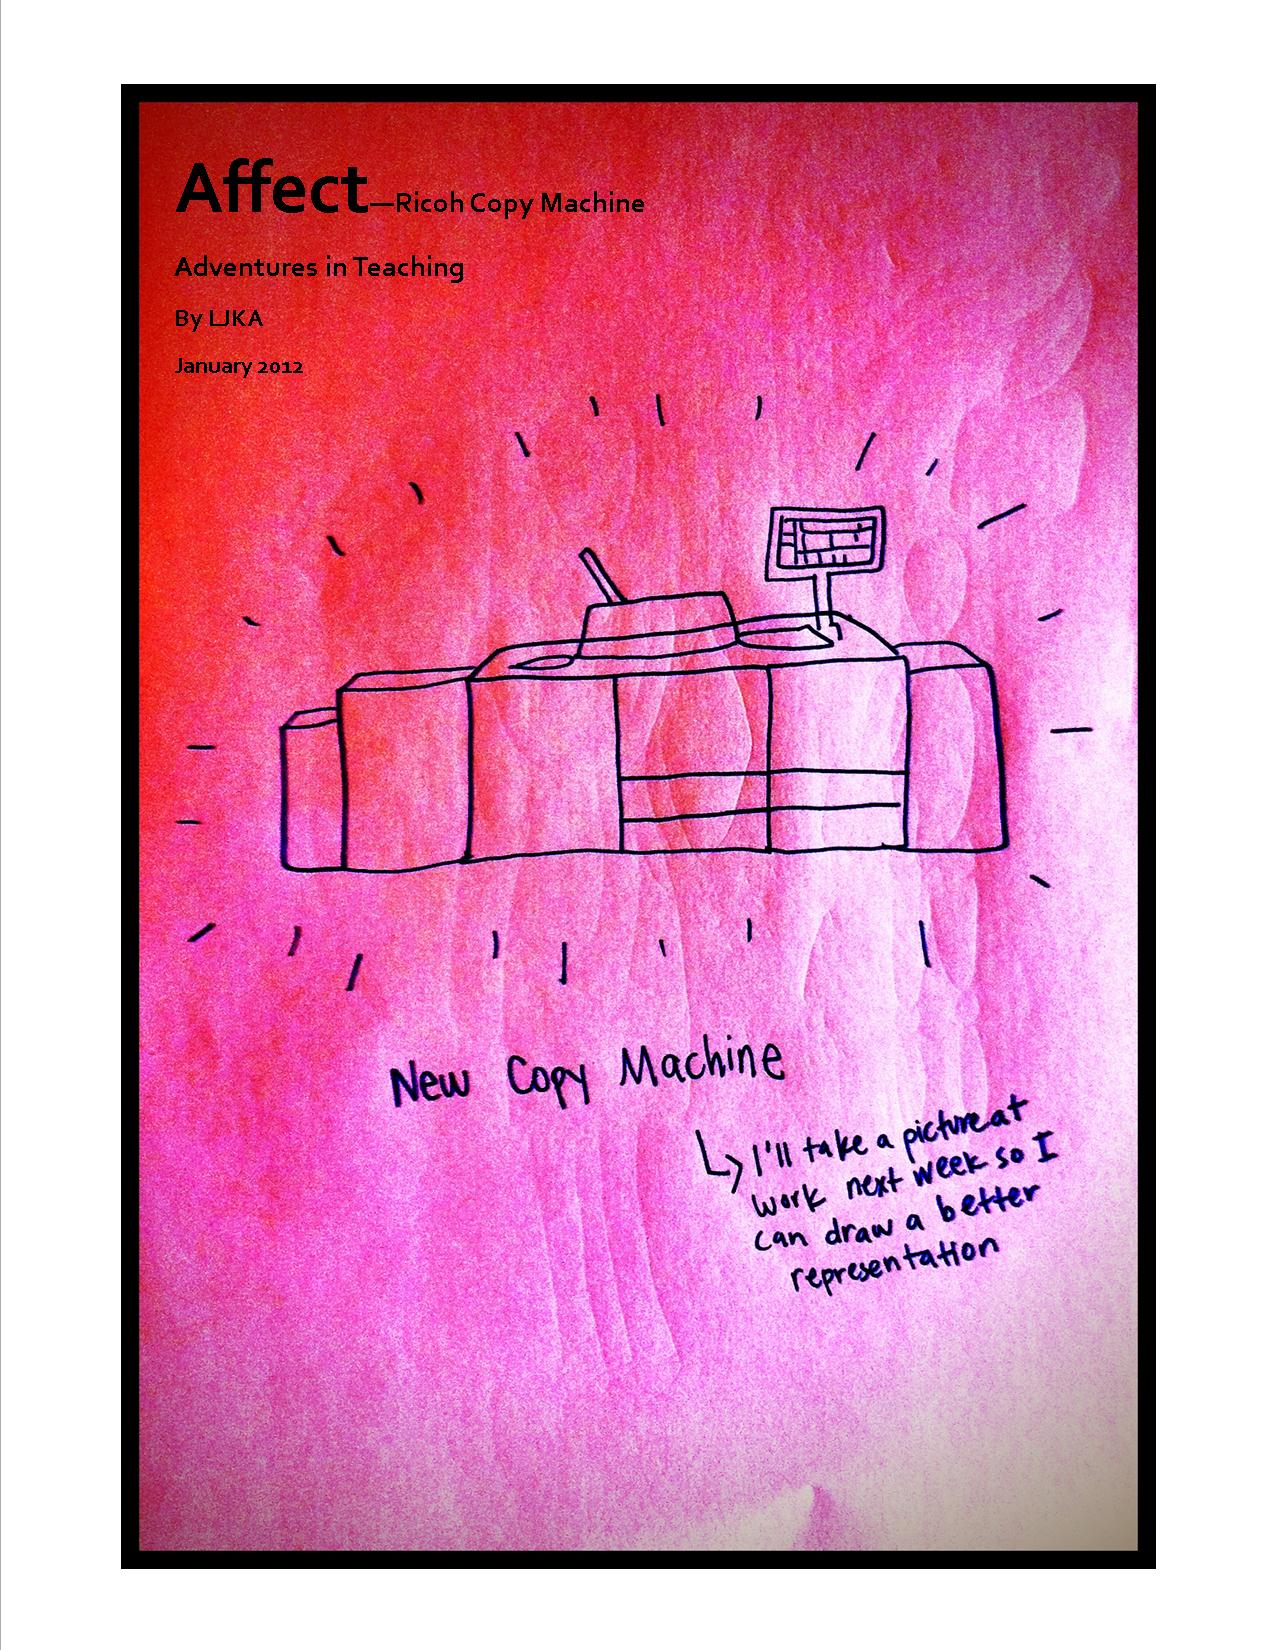 Affect—Ricoh Copy Machine
Adventures in Teaching
By LJKA
January 2012
New Copy Machine
I'll take a picture at
work next week so I
can draw a better
representation